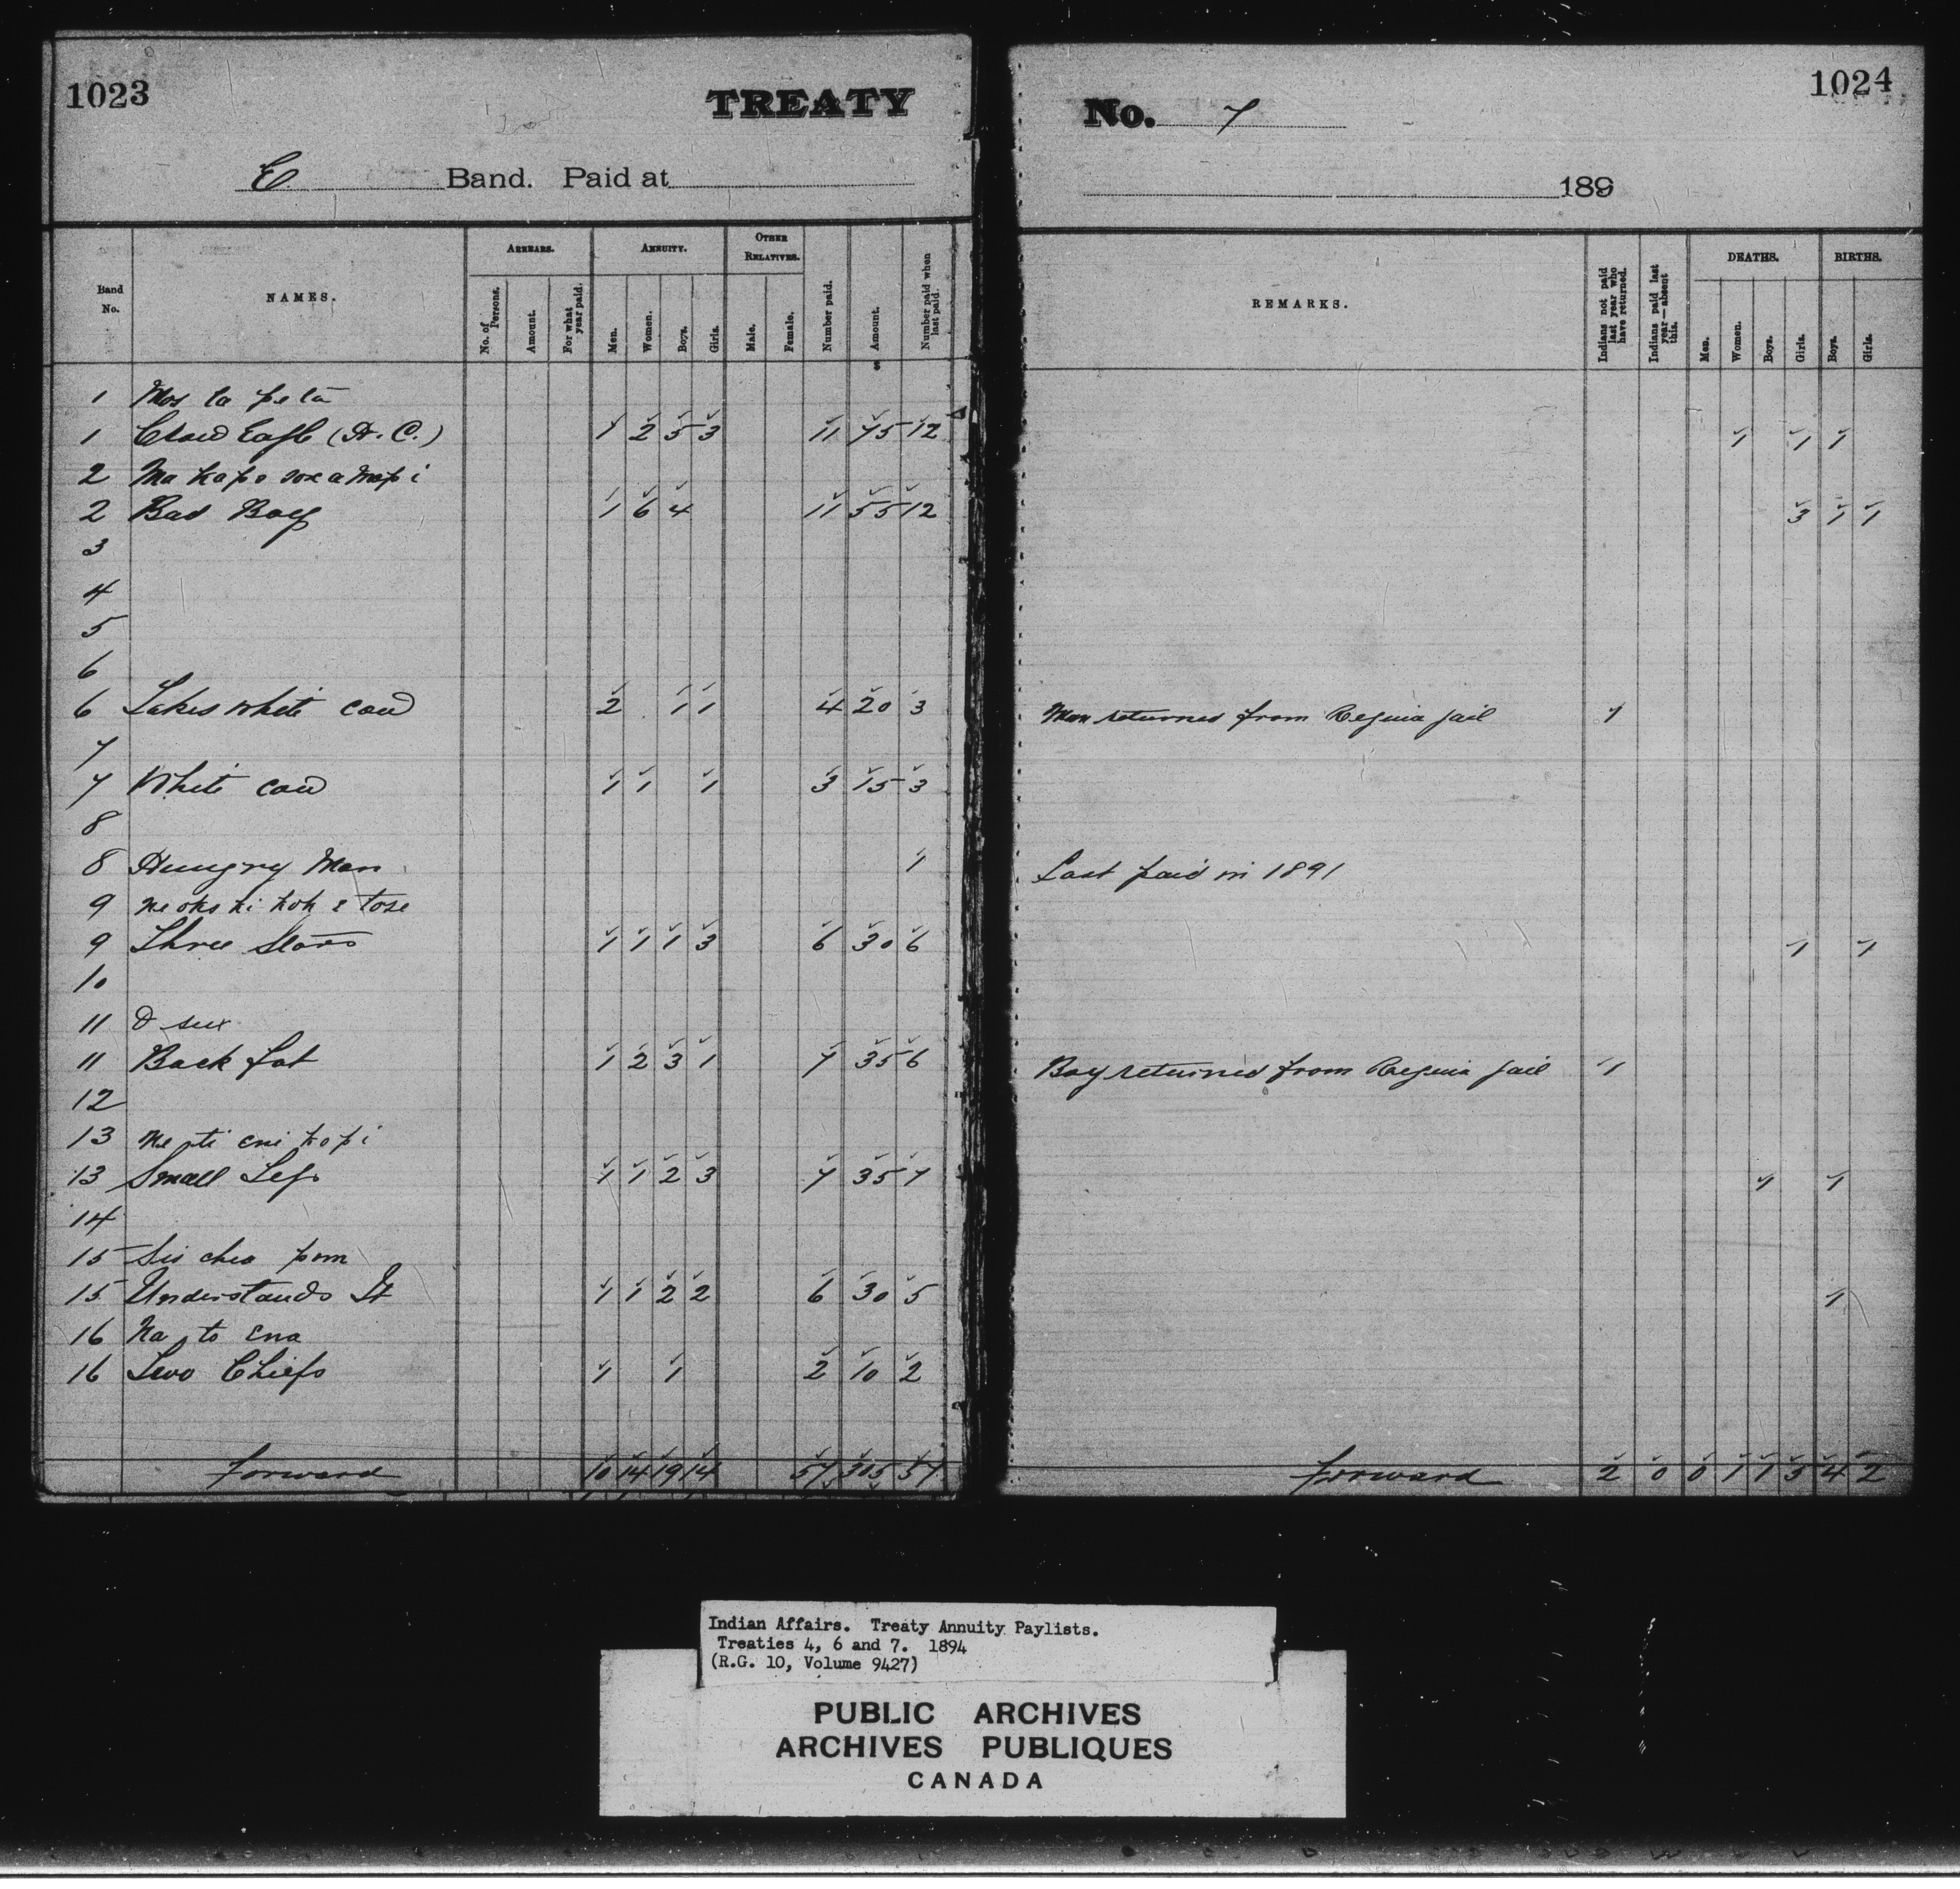 1023
TREATY
E Band. Paid at
Band No. NAMES. ARREARS. No. of Persons. Amount. For what year paid. ANNUITY. Men. Women. Boys. Girls. OTHER RELATIVES. Male. Female. Number paid. Amount. Number paid when last paid.
$
1 Mos ta pe ta
1 Crow Eagle (H. C.) 1 2 5 3 11 75 12
2
2 Bad Boy 1 6 4 11 55 12
3
4
5
6
6 Takes White Cow 2 1 1 4 20 3
7
7 White Cow 1 1 1 3 15 3
8
8 Hungry Man 1
9
9 Three Stars 1 1 1 3 6 30 6
10
11
11 Back Fat 1 2 3 1 7 35 6
12
13
13 Small Legs 1 1 2 3 7 35 7
14
15
15 Understands It 1 1 2 2 6 30 5
16 Na to ena
16 Two Chiefs 1 1 2 10 2
forward 10 14 19 14 57 305 57
1024
No. 7
189
REMARKS. Indians not paid last year who have returned. Indians paid last year—absent this. DEATHS. Men. Women. Boys. Girls. BIRTHS. Boys. Girls.
1 1 1
3 1 1
Man returned from Regina jail 1
Last paid in 1891
1 1
Boy returned from Regina jail 1
1 1
1
forward 2 0 0 1 1 5 4 2
Indian Affairs. Treaty Annuity Paylists.
Treaties 4, 6 and 7. 1894
(R.G. 10, Volume 9427)
PUBLIC ARCHIVES
ARCHIVES PUBLIQUES
CANADA